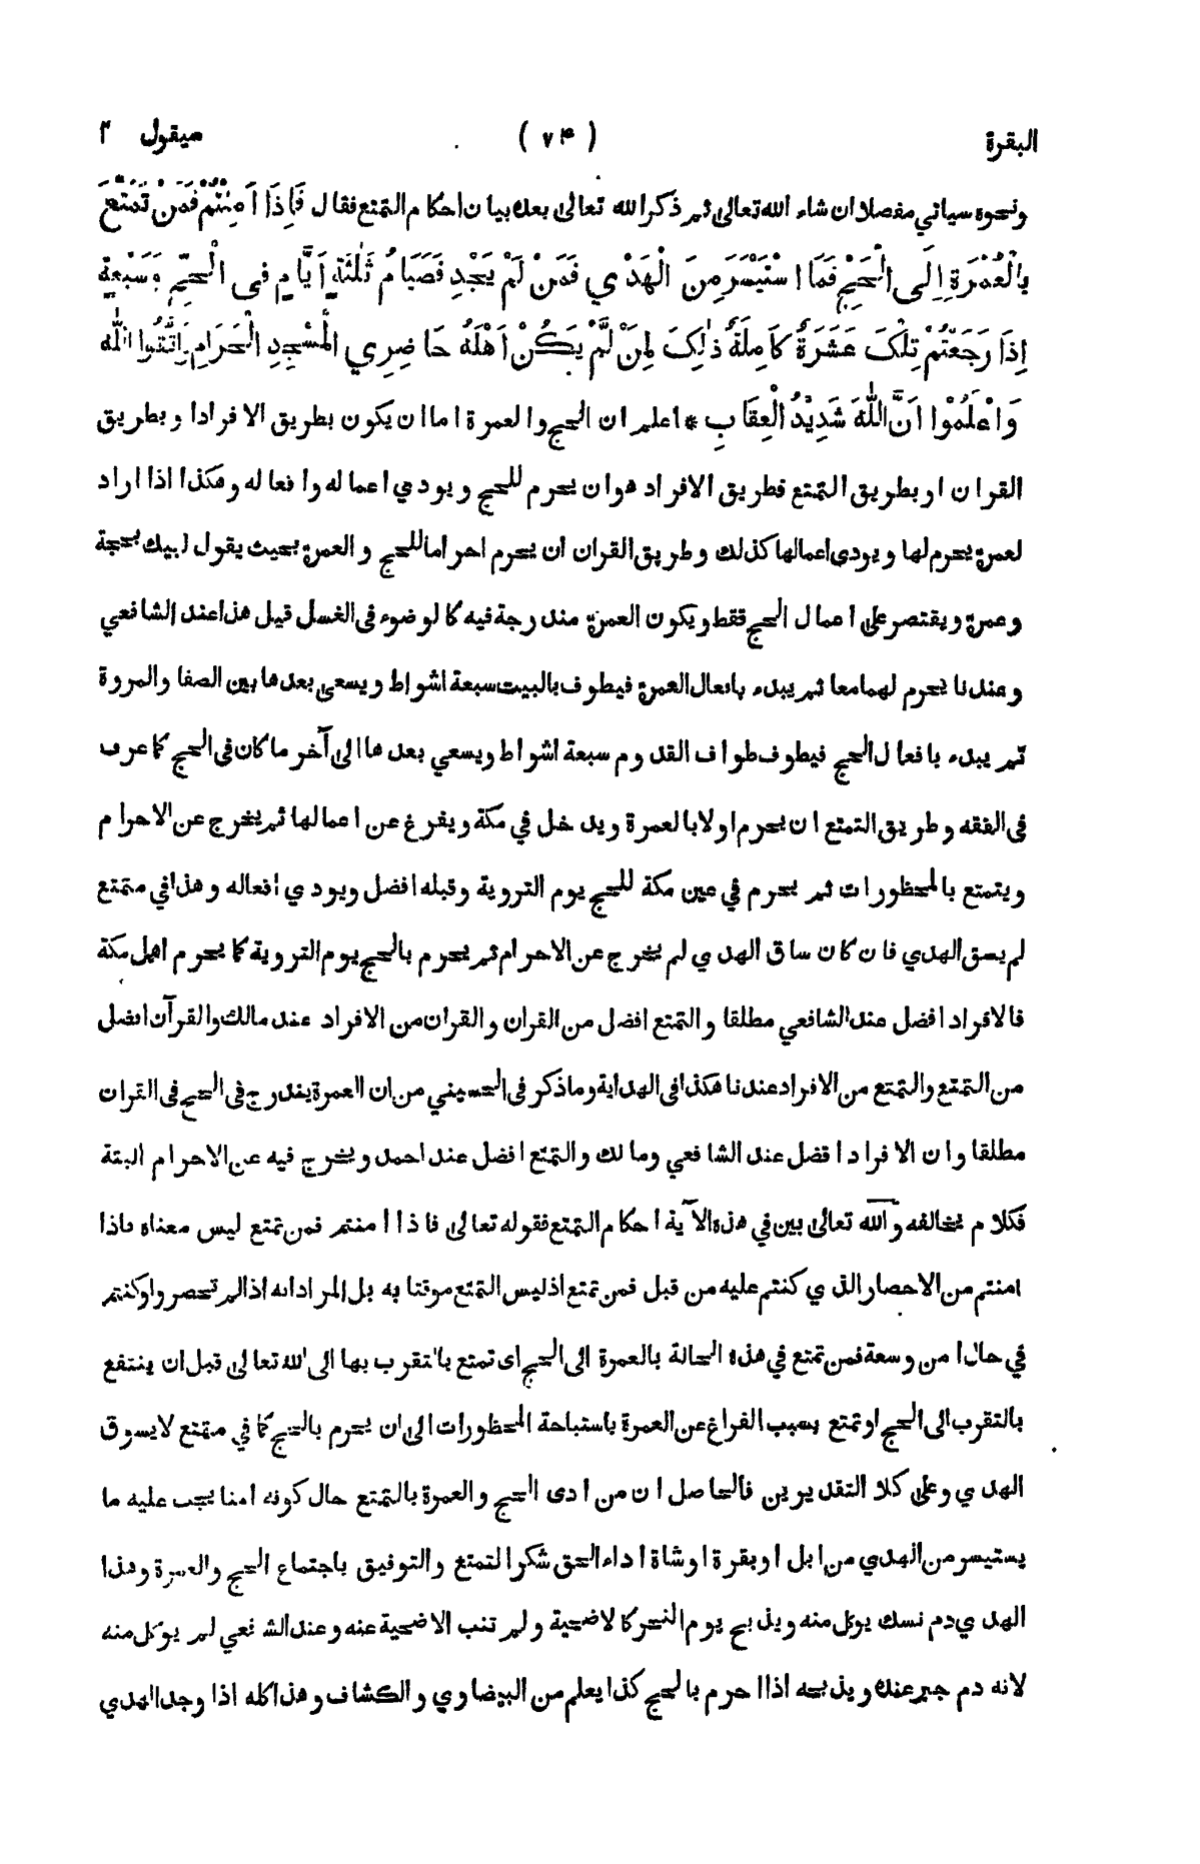 البقرة
( ٧٤ )
سيقول ٢
ونحوه سياتي مفصلا ان شاء الله تعالى ثم ذكر الله تعالى بعده بيان احكام التمتع فقال فَإِذَا اَمِنْتُمْ فَمَنْ تَمَتَّعَ
بِالْعُمْرَةِ اِلَى الْحَجِّ فَمَا اسْتَيْسَرَ مِنَ الْهَدْيِ فَمَنْ لَمْ يَجِدْ فَصِيَامُ ثَلٰثَةِ اَيَّامٍ فِي الْحَجِّ وَسَبْعَةٍ
اِذَا رَجَعْتُمْ تِلْكَ عَشَرَةٌ كَامِلَةٌ ذٰلِكَ لِمَنْ لَّمْ يَكُنْ اَهْلُهُ حَاضِرِي الْمَسْجِدِ الْحَرَامِ وَاتَّقُوا اللّٰهَ
وَاعْلَمُوْا اَنَّ اللّٰهَ شَدِيْدُ الْعِقَابِ * اعلم ان الحج والعمرة اما ان يكون بطريق الافراد او بطريق
القران او بطريق التمتع فطريق الافراد هو ان يحرم للحج ويودي اعماله وافعاله وهكذا اذا اراد
لعمرة يحرم لها ويودى اعمالها كذلك وطريق القران ان يحرم احراما للحج والعمرة بحيث يقول لبيك بحجة
وعمرة ويقتصر على اعمال الحج فقط ويكون العمرة مندرجة فيه كالوضوء فى الغسل قيل هذا عند الشافعي
وعندنا يحرم لهما معا ثم يبدء بافعال العمرة فيطوف بالبيت سبعة اشواط ويسعى بعدها بين الصفا والمروة
ثم يبدء بافعال الحج فيطوف طواف القدوم سبعة اشواط ويسعي بعدها الى آخر ما كان فى الحج كما عرف
فى الفقه وطريق التمتع ان يحرم اولا بالعمرة ويدخل في مكة ويفرغ عن اعمالها ثم يخرج عن الاحرام
ويتمتع بالمحظورات ثم يحرم في عين مكة للحج يوم التروية وقبله افضل ويودي افعاله وهذا في متمتع
لم يسق الهدي فان كان ساق الهدي لم يخرج عن الاحرام ثم يحرم بالحج يوم التروية كما يحرم اهل مكة
فالافراد افضل عند الشافعي مطلقا والتمتع افضل من القران والقران من الافراد عند مالك والقرآن افضل
من التمتع والتمتع من الافراد عندنا هكذا فى الهداية وما ذكر فى الحسيني من ان العمرة يندرج فى الحج فى القران
مطلقا وان الافراد افضل عند الشافعي ومالك والتمتع افضل عند احمد ويخرج فيه عن الاحرام البتة
فكلام يخالفه والله تعالى بين في هذه الآية احكام التمتع فقوله تعالى فاذا امنتم فمن تمتع ليس معناه فاذا
امنتم من الاحصار الذي كنتم عليه من قبل فمن تمتع اذ ليس التمتع موقتا به بل المراد انه اذا لم تحصروا وكنتم
في حال امن وسعة فمن تمتع في هذه الحالة بالعمرة الى الحج اى تمتع بالتقرب بها الى الله تعالى قبل ان ينتفع
بالتقرب الى الحج او تمتع بسبب الفراغ عن العمرة باستباحة المحظورات الى ان يحرم بالحج كما في متمتع لا يسوق
الهدي وعلى كلا التقديرين فالحاصل ان من ادى الحج والعمرة بالتمتع حال كونه امنا يجب عليه ما
يستيسر من الهدي من ابل او بقرة او شاة اداء الحق شكر التمتع والتوفيق باجتماع الحج والعمرة وهذا
الهدي دم نسك يوكل منه ويذبح يوم النحر كالاضحية ولم تنب الاضحية عنه وعند الشافعي لم يوكل منه
لانه دم جبر عنده ويذبحه اذا احرم بالحج كذا يعلم من البيضاوي والكشاف وهذا كله اذا وجد الهدي